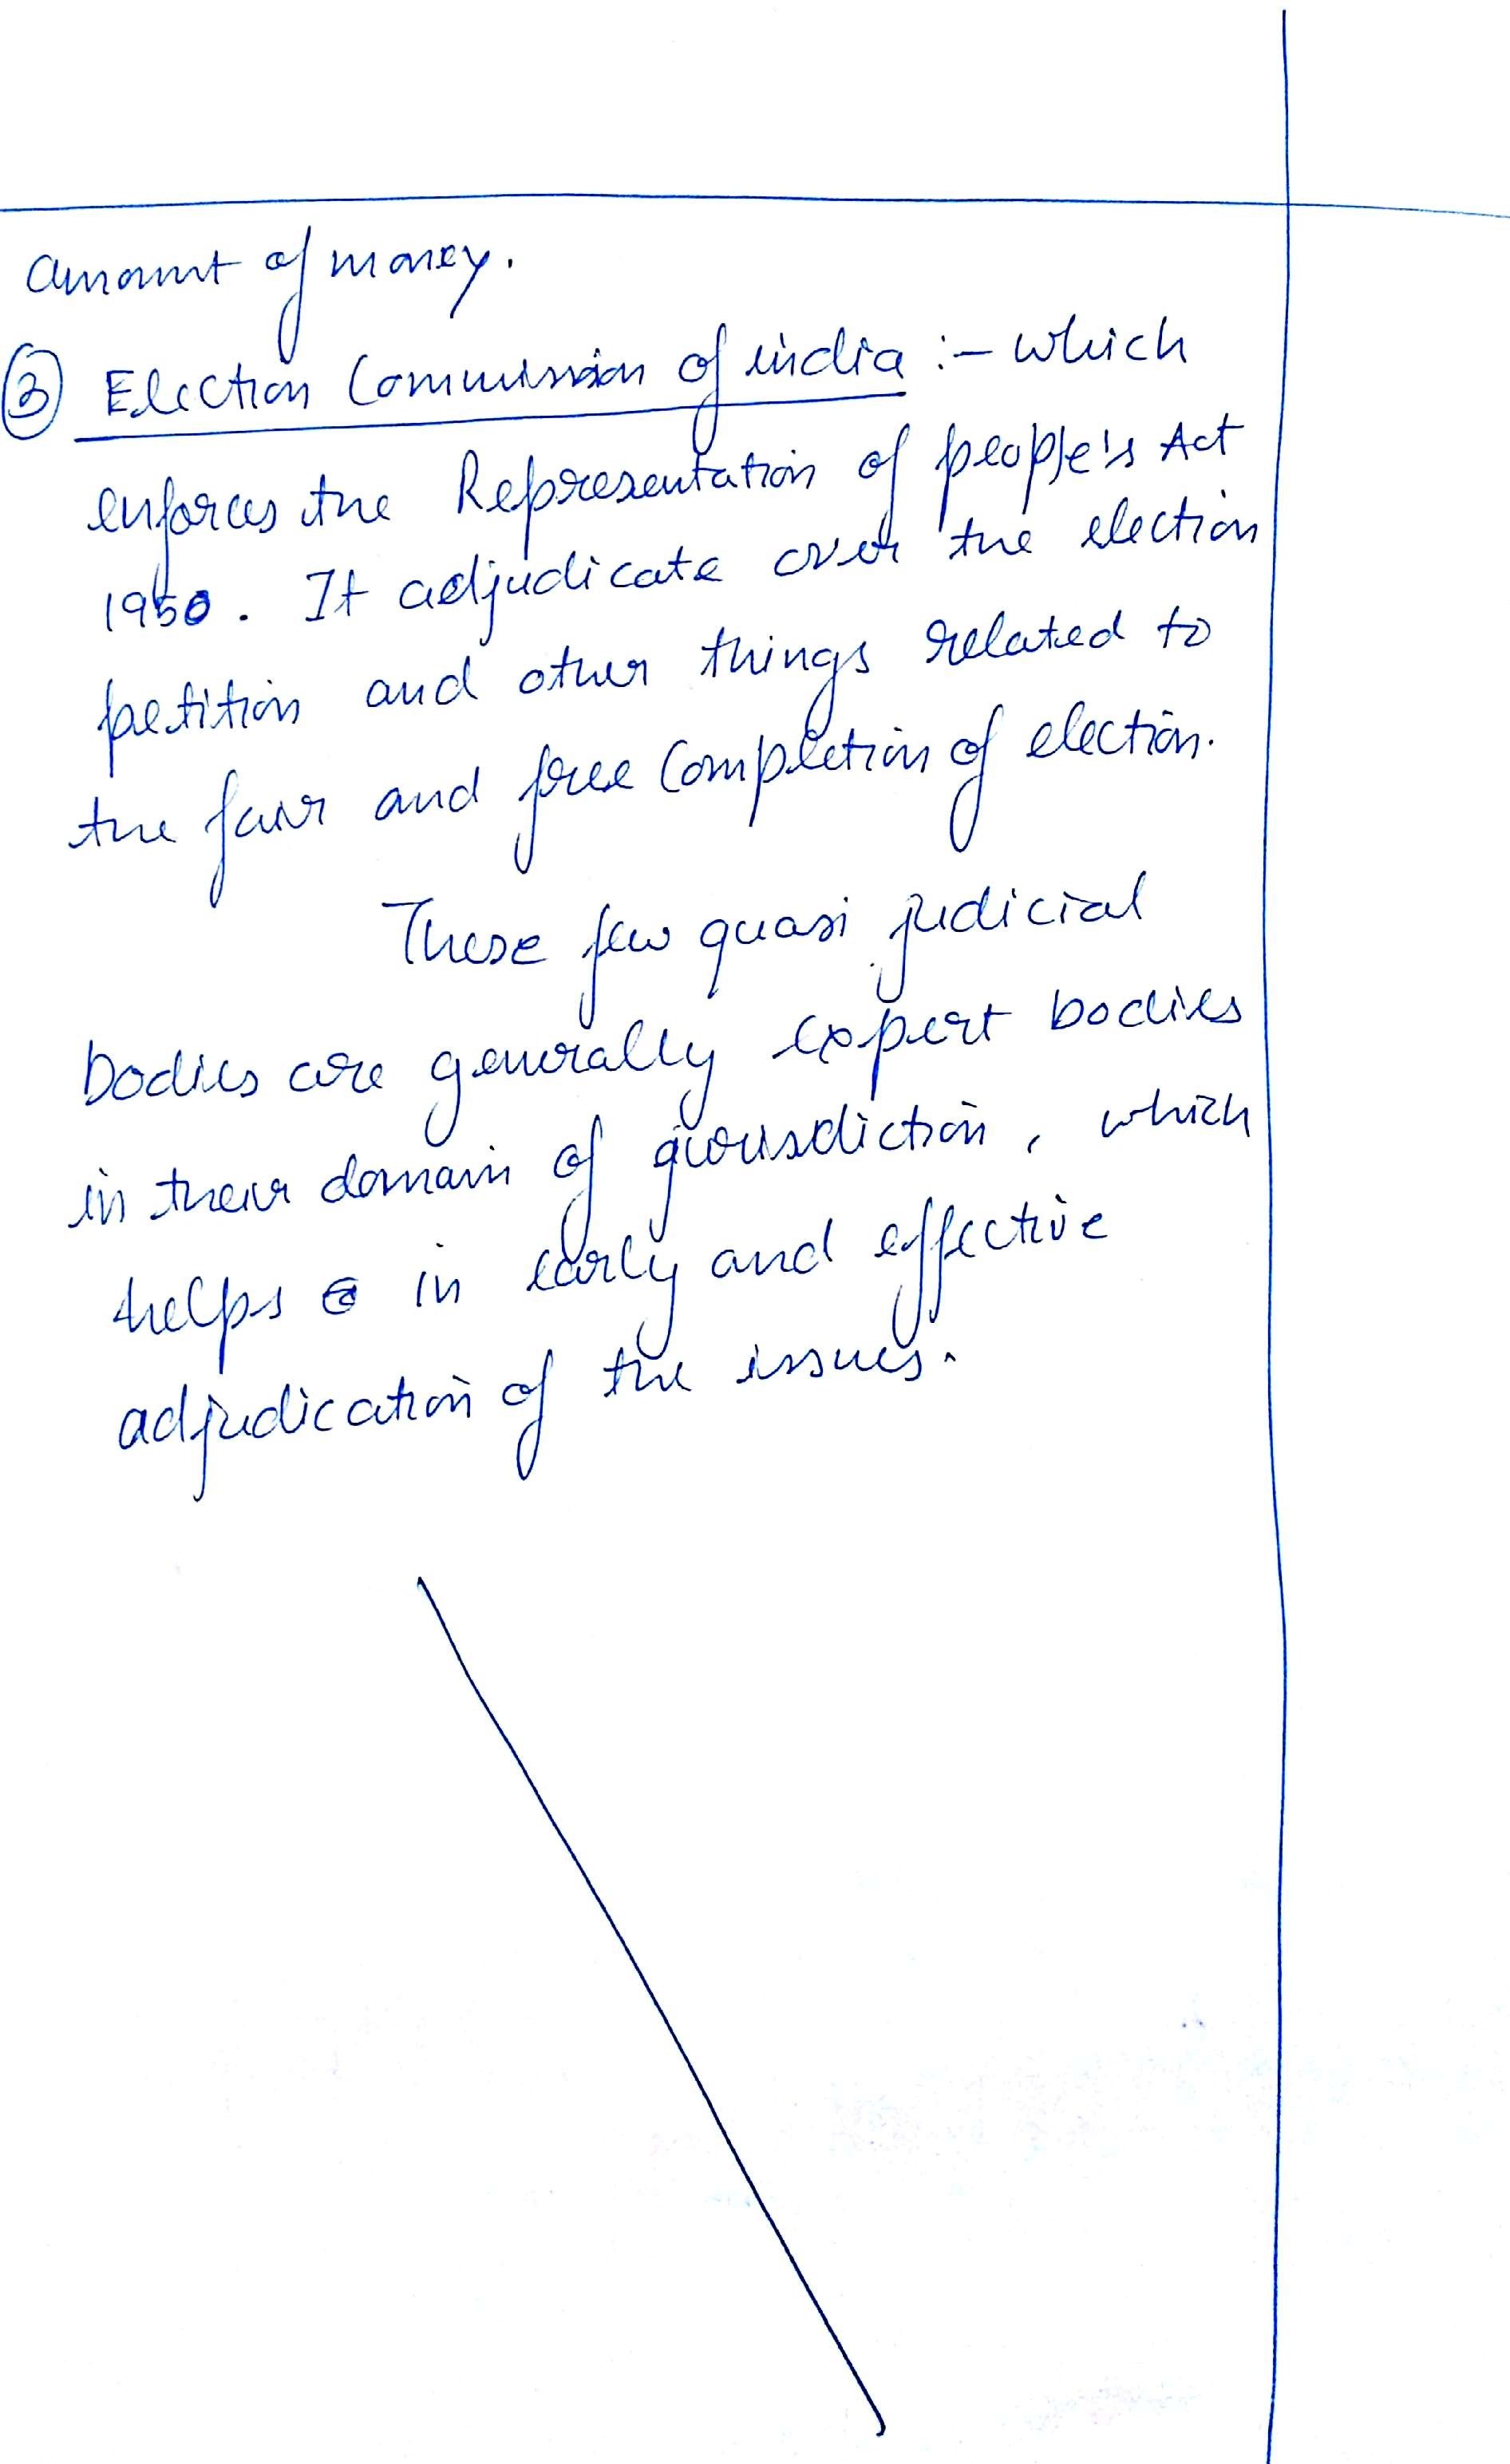 amount of money.
③ Election Commission of india :- which
enforces the Representation of people's Act
1950. It adjudicate over the election
petition and other things related to
the fair and free completion of election.
These few quasi judicial
bodies are generally expert bodies
in their domain of giourisdiction, which
helps in early and effective
adjudication of the issues.